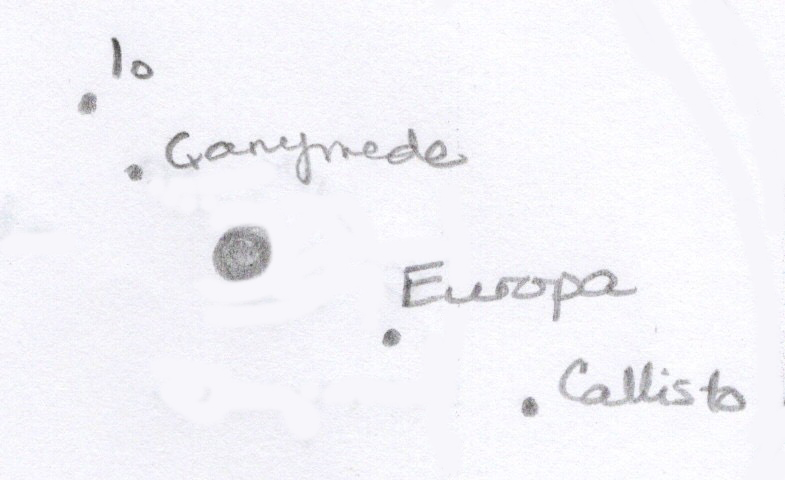 Io
Ganymede
Europa
Callisto